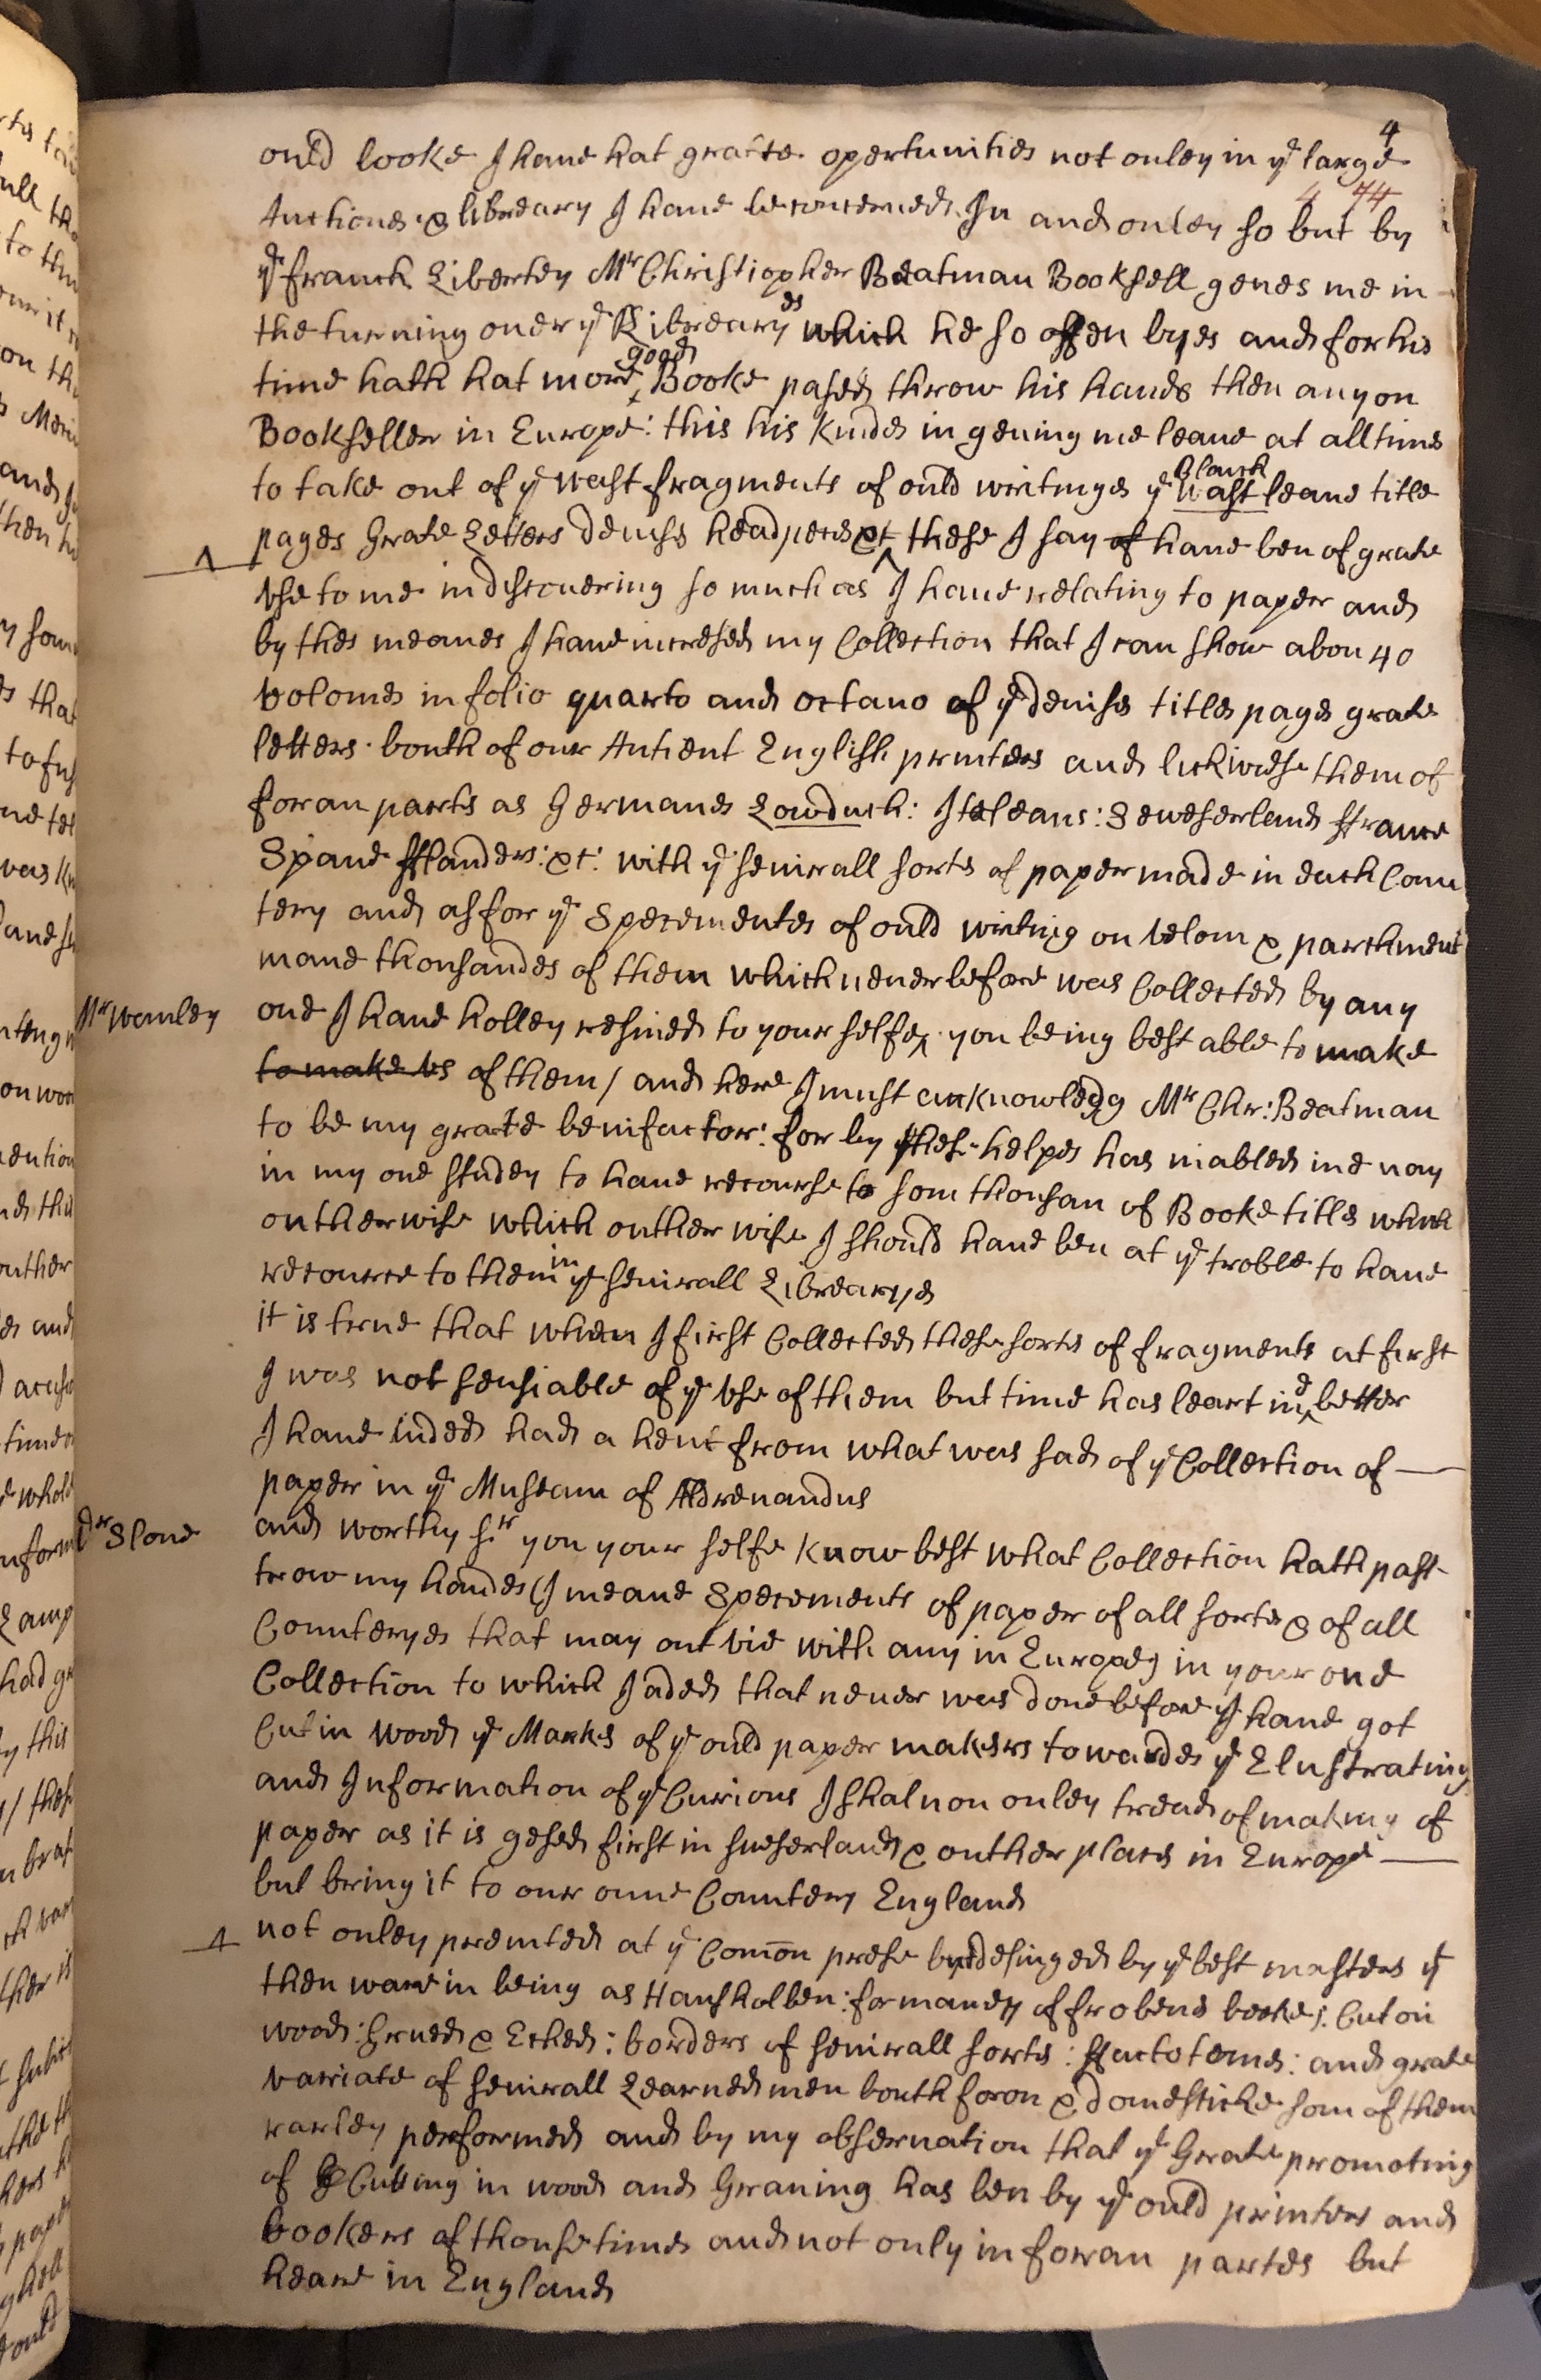 4
ould looke I haue hat grate opertunities not onley in ye large
4 74
Auctiones & libreary I haue be concerned In and onley so but by
ye franck Liberty Mr Christiopher Beatman Booksell geues me in
the turning ouer ye Librearyes which he so offen byes and for his
time hath hat more good Booke pased throw his hands then anyon
Bookseller in Europe: this his kindes in geuing me leaue at all times
to take out of ye wast fragments of ould writinges ye blanck wast leaue title
pages Grate Letters deuiss headpeces &c these I say of haue ben of grate
vse to me in discouering so much as I haue relating to paper and
by thes meanes I haue incresed my Collection that I can show abou 40
volomes in folio quarto and octauo of ye deuises titles pages grate
letters bouth of our Antient English printers and lickwiese them of
foran parts as Germanes Lowduch: Italeans: Sweserland ffrance
Spane fflanders: &c: with ye seuirall sorts of paper made in each Coun
tery and as for ye Specementes of ould writing on velom & parchment
mane thousandes of them which neuer before was Collected by any
Mr Wanley
one I haue holley resined to your selfe, you being best able to make
to make vs of them / and here I must acknowledg Mr Chr: Beatman
to be my grate benifactor: for by thes helpes has niabled me nay
in my one studey to haue recourse to som thousan of Booke titles which
outherwise which outher wise I should haue ben at ye troble to haue
recource to them in ye seuirall Librearyes
it is true that when I first Collected these sorts of fragments at first
I was not sensiable of ye vse of them but time has leart me better
I haue inded had a hent from what was sad of ye Collection of
paper in ye Museam of Aldrenandus
Dr Slone
and worthy Sr you your selfe know best what Collection hath past
trow my handes (I meane Specements of paper of all sortes & of all
Counteryes that may out vie with any in Europe) in your one
Collection to which I aded that neuer was done before I haue got
Cut in wood ye Markes of ye ould paper makers towardes ye Elustrating
and Information of ye Curious I shal non onley tread of making of
paper as it is gesed first in suserland & outher places in Europe
but bring it to our oune Countery England
not onley prented at ye Comon prese but desinged by ye best masters yt
then ware in being as Hansholben: for maney of frobens bookes: Cut on
wood: Grued & Eched: borders of seuirall sorts: ffactotemes: and grate
variate of seuirall Learned men bouth foron & domesticke som of them
rarley performed and by my obseruation that ye Grate promoting
of Cutting in wood and Grauing has ben by ye ould printers and
bookers of thouse times and not only in foran partes but
heare in England